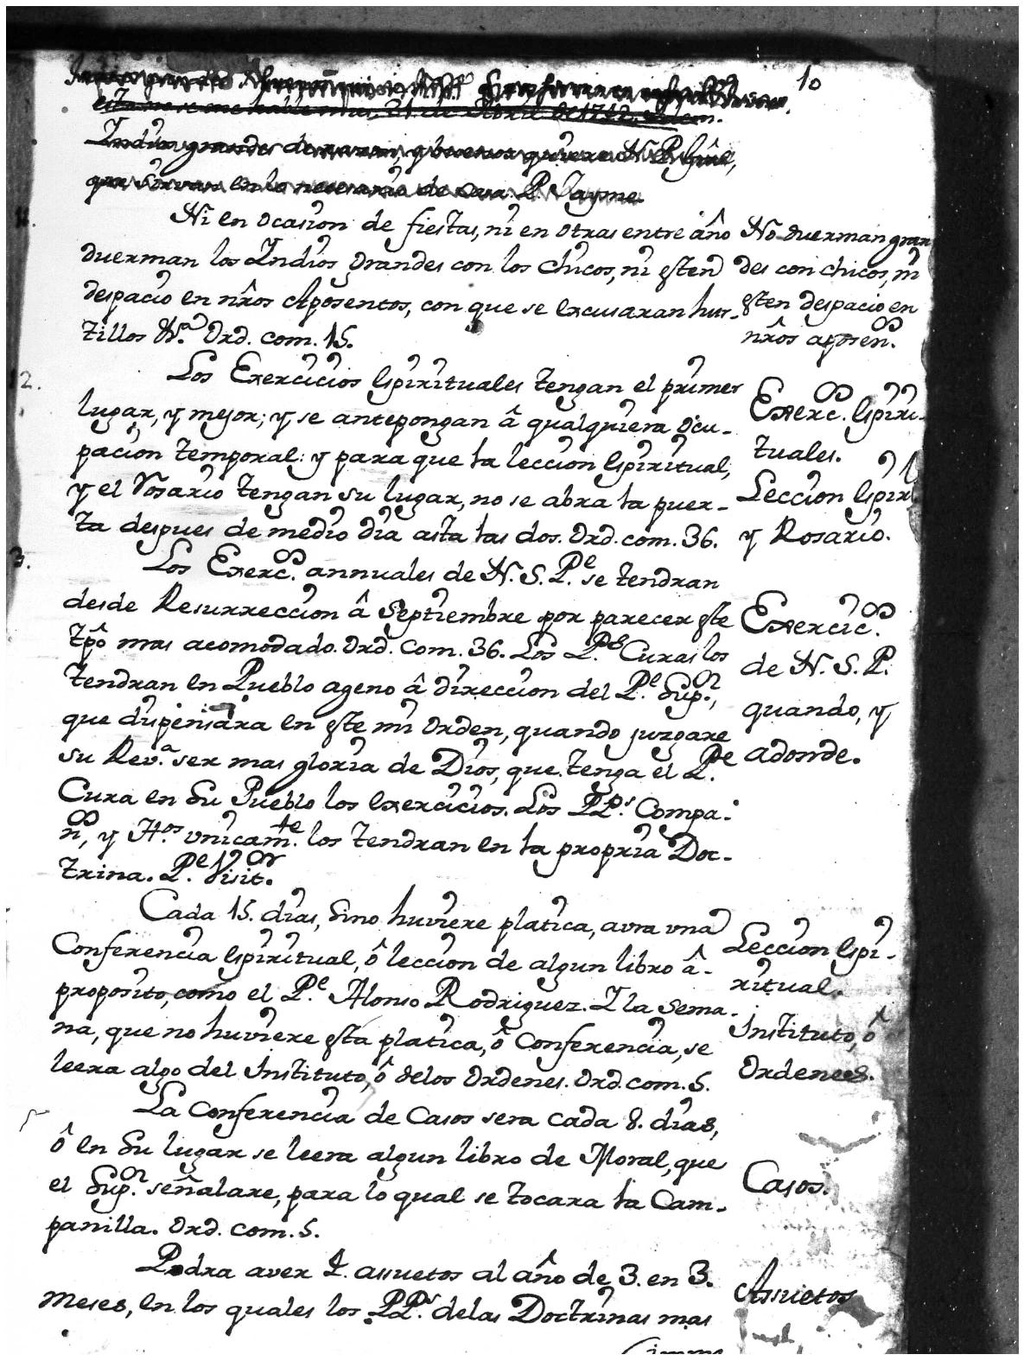 10
esta 21. de Abril de 1742.
Indios grandes de razon, y buenos quiere N. P. Gral,
que sirvan en lo necesario de cera. P. Jayme.
11.
Ni en ocasion de fiestas, ni en otras entre año
duerman los Indios grandes con los chicos, ni esten
despacio en nr̂os Aposentos, con que se excusaran hur-
tillos &.ª Ord. com. 15.
No duerman gran
des con chicos, ni
esten despacio en
nr̂os aposen.ᵒˢ
12.
Los Exercicios Espirituales tengan el primer
lugar, y mejor; y se antepongan â qualquiera ocu-
pacion temporal: y para que la leccion Espiritual,
y el Rosario tengan su lugar, no se abra la puer-
ta despues de medio dia asta las dos. Ord. com. 36.
Exerc.ᵒˢ Espiri-
tuales.
Leccion Espiri
y Rosario.
3.
Los Exerc.ᵒˢ annuales de N. S. P.ᵉ se tendran
desde Resurreccion â Septiembre por parecer este
tp̂o mas acomodado. Ord. com. 36. Los P.ᵉˢ Curas los
tendran en Pueblo ageno â direccion del P.ᵉ Sup.ᵒʳ,
que dispensara en este mi Orden, quando juzgare
su Rev.ª ser mas gloria de Dios, que tenga el P.ᵉ
Cura en su Pueblo los exercicios. Los PP.ˢ Compa-
ñ.ᵒˢ, y H.ᵒˢ unicam.ᵗᵉ los tendran en la propria Doc-
trina. P.ᵉ Visit.ᵒʳ
Exercic.ᵒˢ
de N. S. P.
quando, y
adonde.
Cada 15. dias, sino huviere platica, avra una
Conferencia Espiritual, ô leccion de algun libro â-
proposito, como el P.ᵉ Alonso Rodriguez. I la sema-
na, que no huviere esta platica, ô Conferencia, se
leera algo del Instituto, ô delos Ordenes. Ord. com. 5.
Leccion Espi-
ritual.
Instituto, ô
Ordenes.
La Conferencia de Casos sera cada 8. dias,
ô en su lugar se leera algun libro de Moral, que
el Sup.ᵒʳ señalare, para lo qual se tocara la Cam-
panilla. Ord. com. 5.
Casos.
Podra aver 4. assuetos al año de 3. en 3.
Meses, en los quales los PP.ˢ delas Doctrinas mas
Assuetos